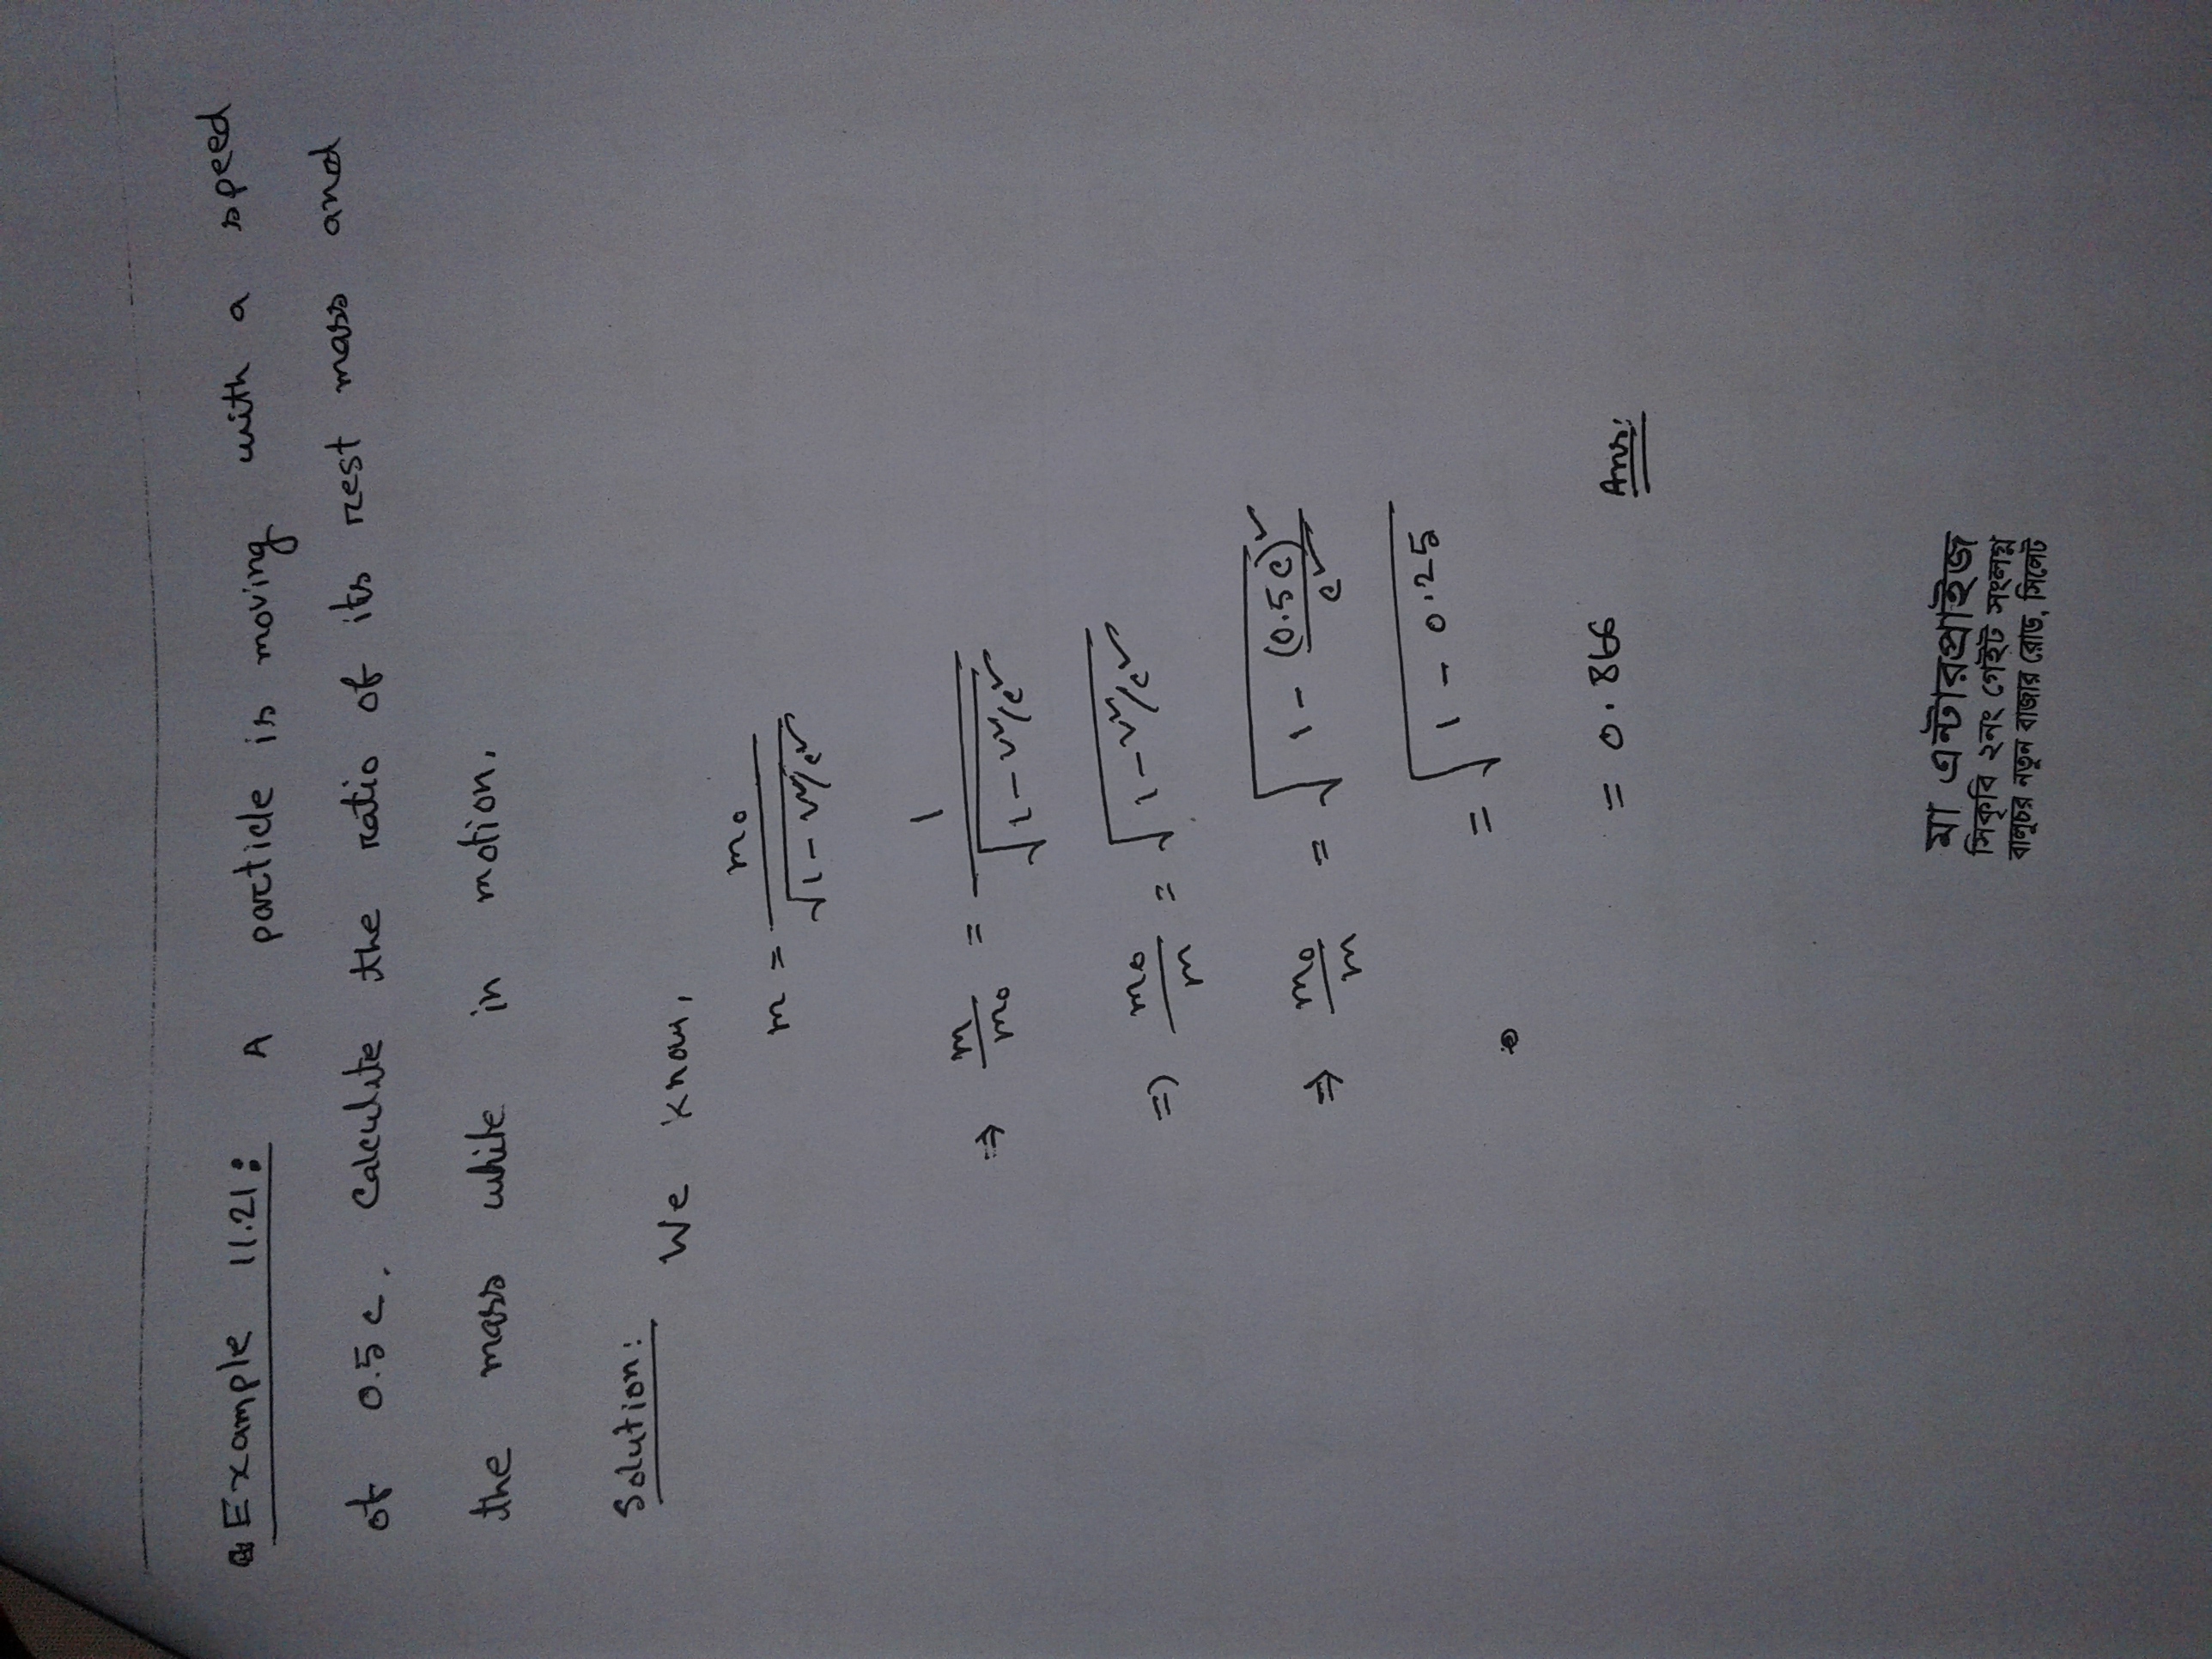 Example 11.21: A particle is moving with a speed
of 0.5c. Calculate the ratio of its rest mass and
the mass while in motion.
Solution:
We know,
m = m₀ / √(1 - v²/c²)
⇒ m/m₀ = 1 / √(1 - v²/c²)
⇒ m₀/m = √(1 - v²/c²)
⇒ m₀/m = √(1 - (0.5c)²/c²)
= √(1 - 0.25)
= 0.866 Ans:
মা এন্টারপ্রাইজ
সিকৃবি ২নং গেইট সংলগ্ন
বালুচর নতুন বাজার রোড, সিলেট